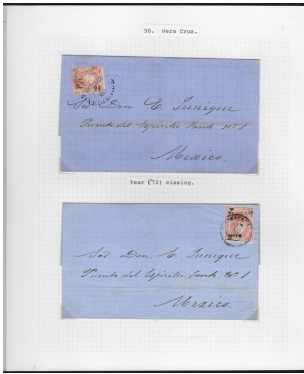 50. Vera Cruz.
Sr Don E. Junique
Puente del Espíritu Santo No 1
Mexico.
Year ('72) missing.
Sr Don E. Junique
Puente del Espíritu Santo No 1
Mexico.